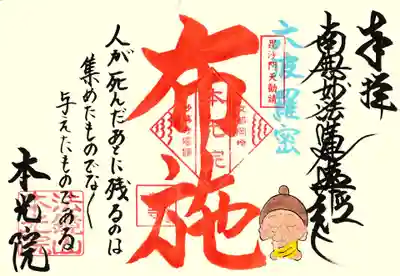 奉拝
南無妙法蓮華経
六波羅蜜
毘沙門天勧請
布施
本光院
人が死んだあとに残るのは
集めたものでなく
与えたものである
本光院